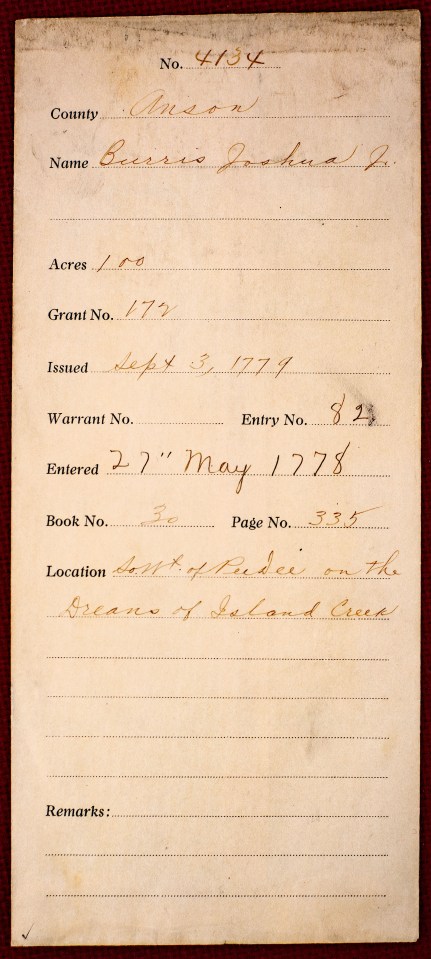 No. 4134
County Anson
Name Burris Joshua J.
Acres 100
Grant No. 172
Issued Sept 3, 1779
Warrant No. Entry No. 82
Entered 27" May 1778
Book No. 30 Page No. 335
Location So. Wt. of PeeDee on the
Dreans of Island Creek
Remarks: